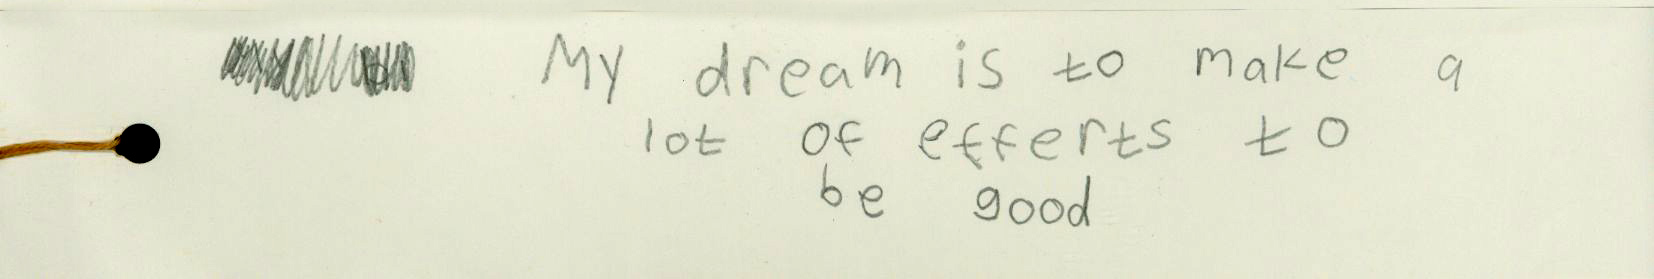 My dream is to make a
lot of efferts to
be good